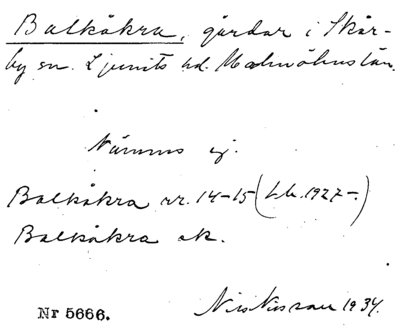 Balkåkra, gårdar i Skår-
by sn. Ljunits hd. Malmöhus län.
Nämnes ej.
Balkåkra nr. 14-15 (Lb. 1927-.)
Balkåkra ek.
Nr 5666.
Nils Nilsson 1934.